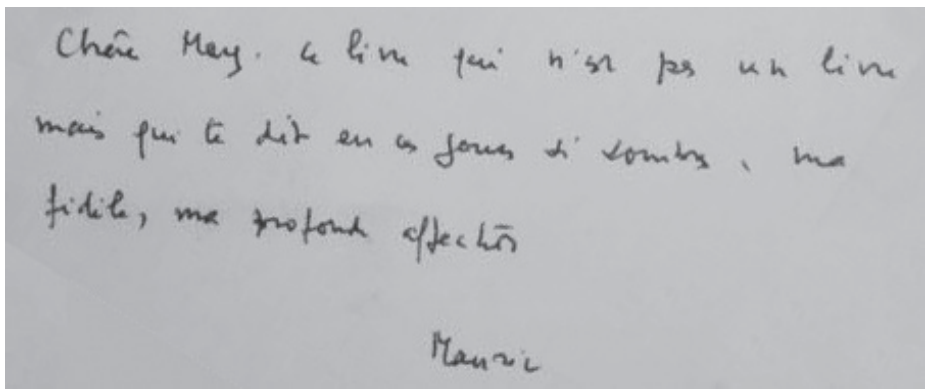 Chère Mary. ce livre qui n'est pas un livre
mais qui te dit en ces jours si sombres, ma
fidèle, ma profonde affection
Maurice